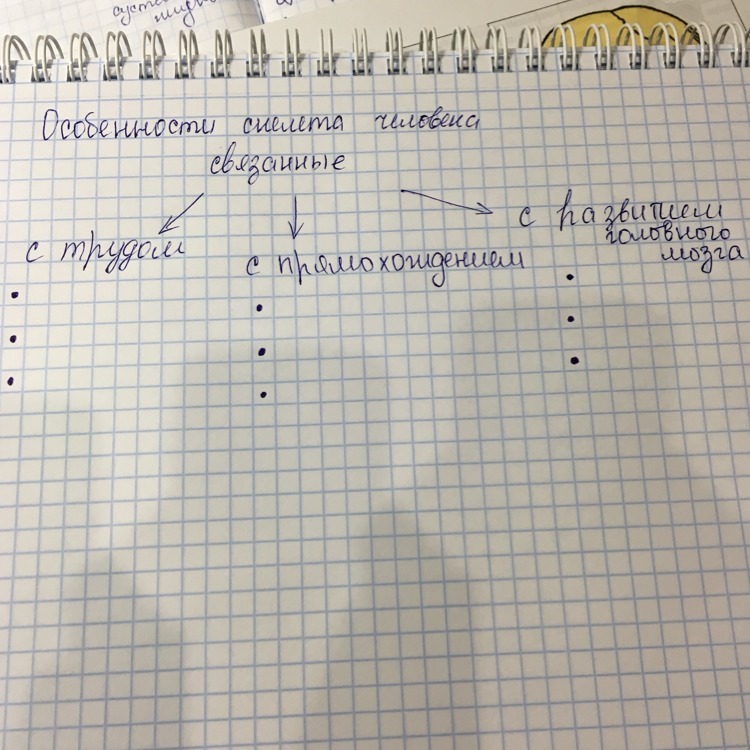 Особенности скелета человека
связанные
с трудом
с прямохождением
с развитием
головного
мозга